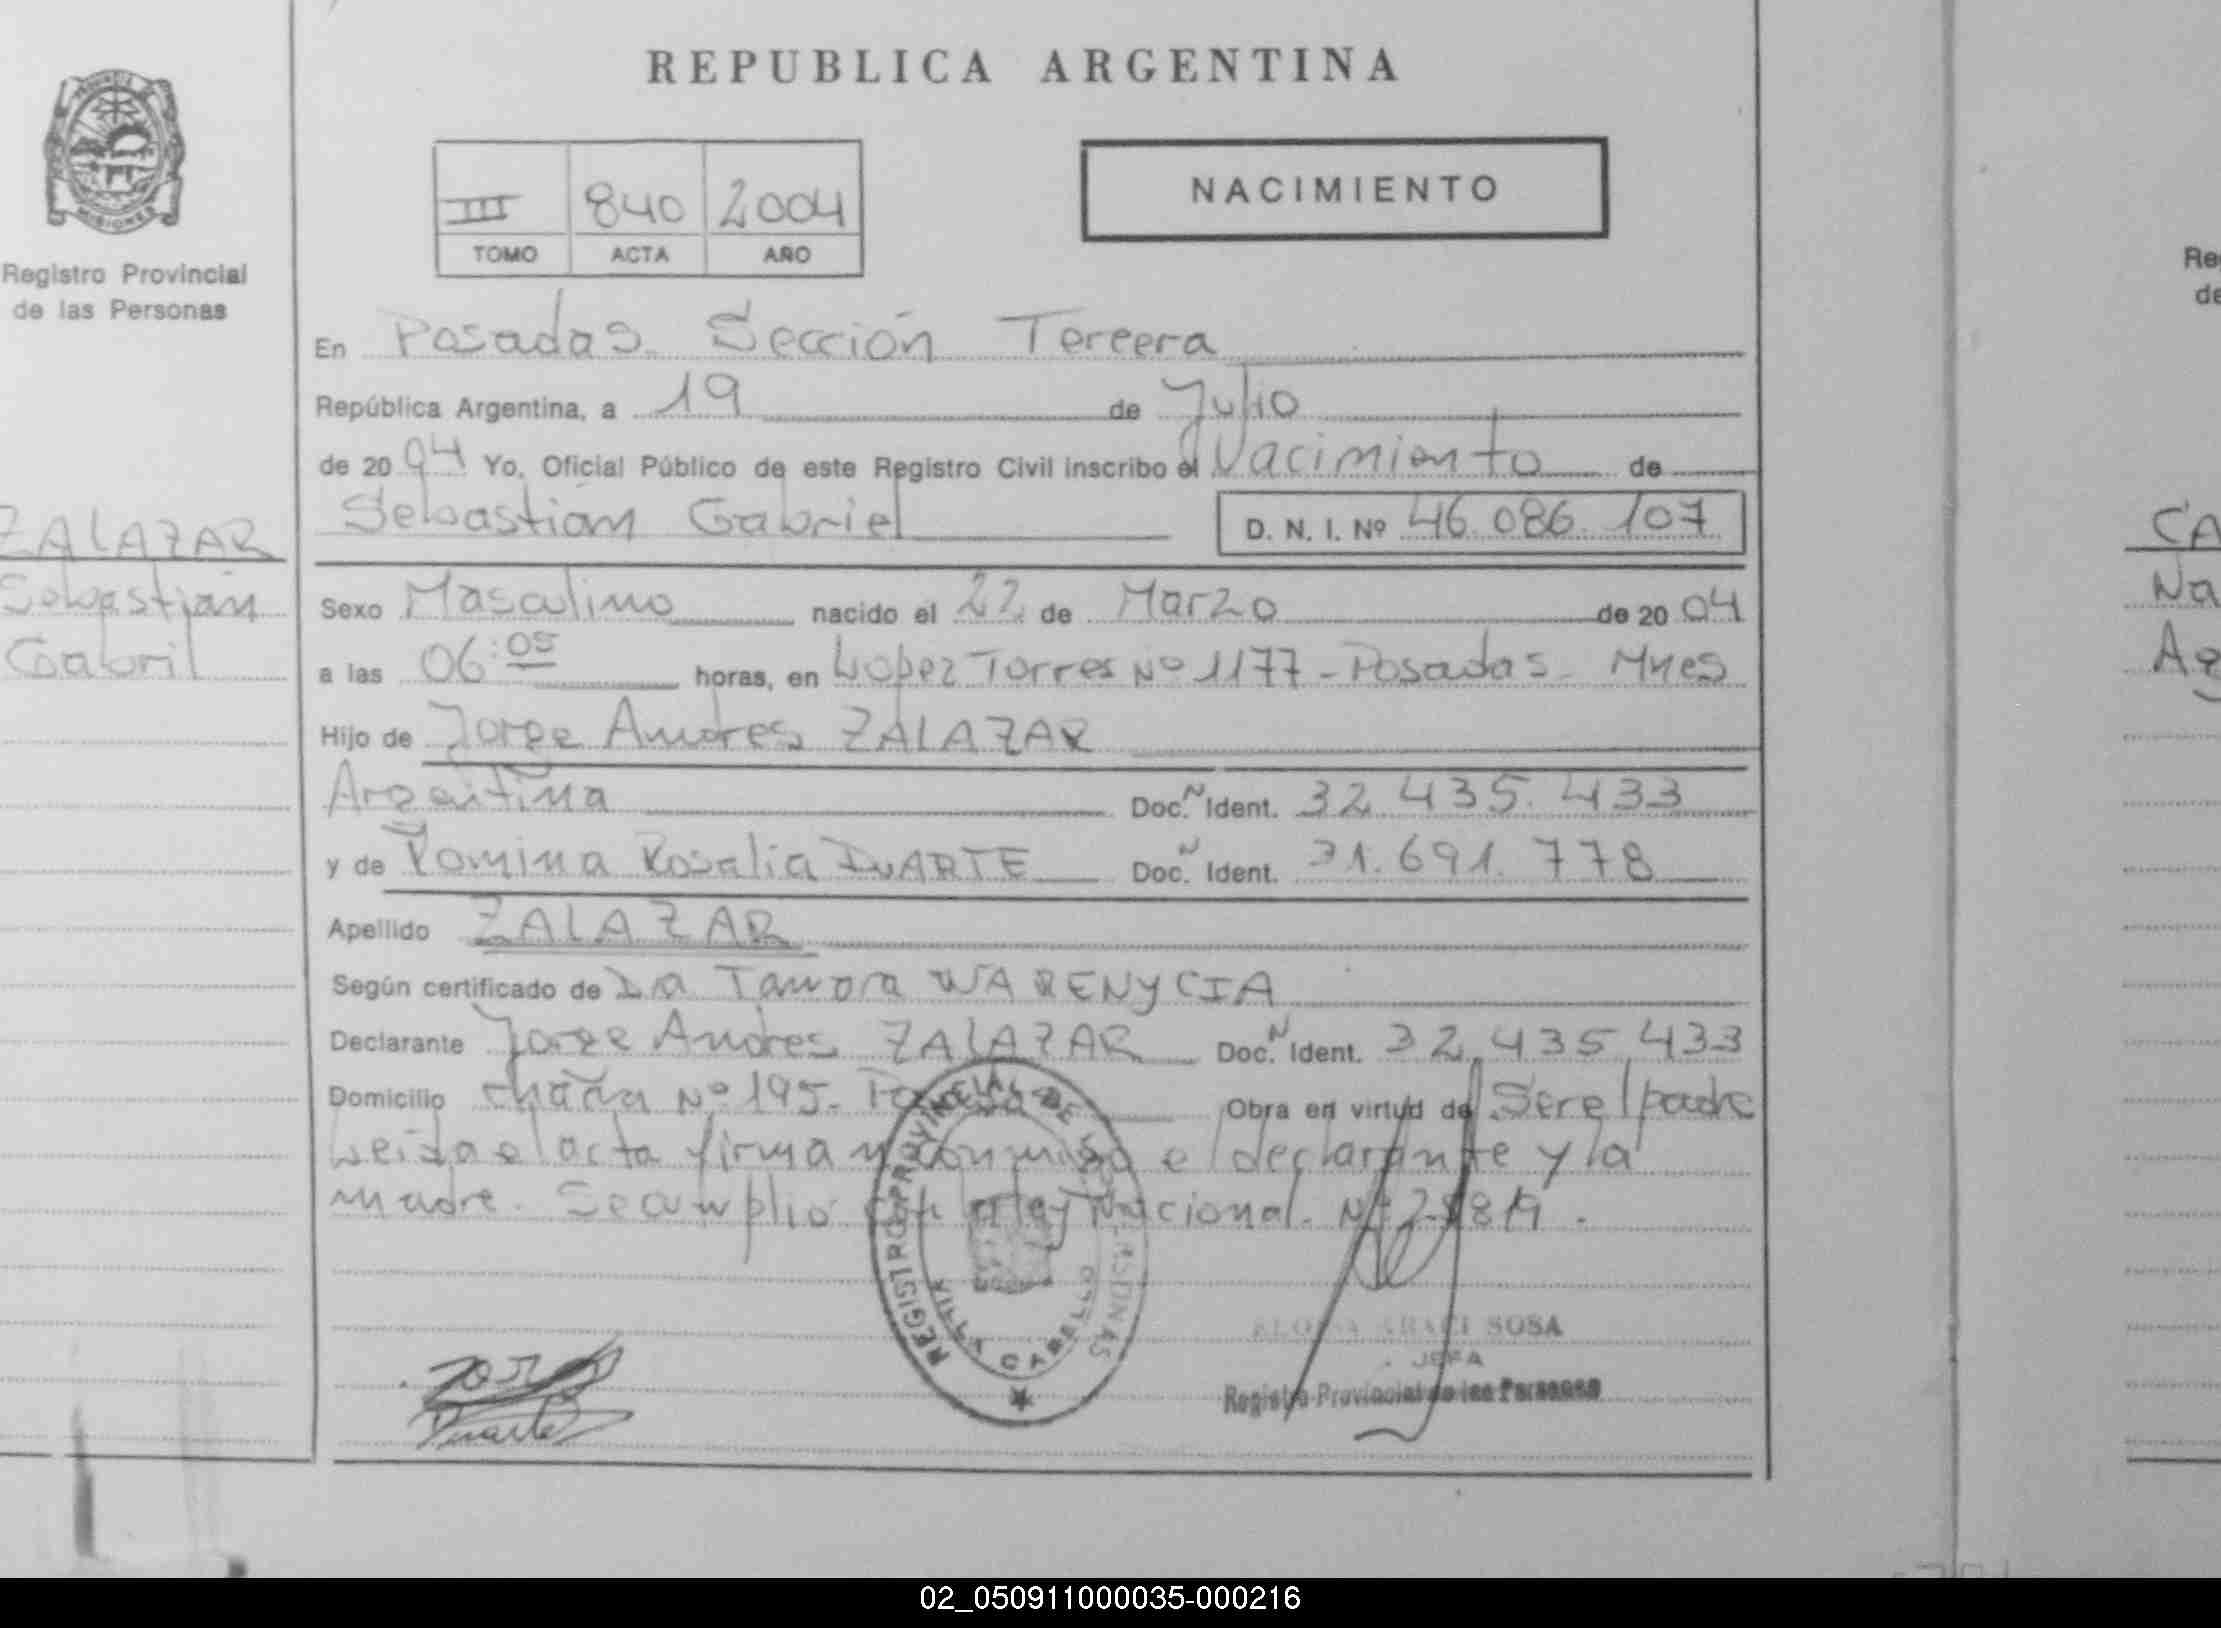 REPUBLICA ARGENTINA
PROVINCIA DE
MISIONES
Registro Provincial
de las Personas
ZALAZAR
Sebastián
Gabril
III 840 2004
TOMO ACTA AÑO
NACIMIENTO
En Posadas. Sección Tercera
República Argentina, a 19 de Julio
de 2004 Yo, Oficial Público de este Registro Civil inscribo el Nacimiento de
Sebastián Gabriel D. N. I. Nº 46.086.107
Sexo Masculino nacido el 22 de Marzo de 20 04
a las 06:05 horas, en Lopez Torres Nº 1177 - Posadas - Mnes
Hijo de Jorge Andres ZALAZAR
Argentina Doc. N Ident. 32.435.433
y de Romina Rosalia DUARTE Doc. N Ident. 31.691.778
Apellido ZALAZAR
Según certificado de Dra WARENYCIA
Declarante Jorge Andres ZALAZAR Doc. N Ident. 32.435.433
Domicilio Nº 195. Posadas Obra en virtud de Ser el padre
Leida el acta firman conmigo el declarante y la
madre. Se cumplio con la ley Nacional. Nº
REGISTRO PROVINCIAL DE LAS PERSONAS
VILLA CABELLO
ARACI SOSA
JEFA
Registro Provincial de las Personas
Jorge
Duarte
Re
de
CA
Na
Ag
02_050911000035-000216